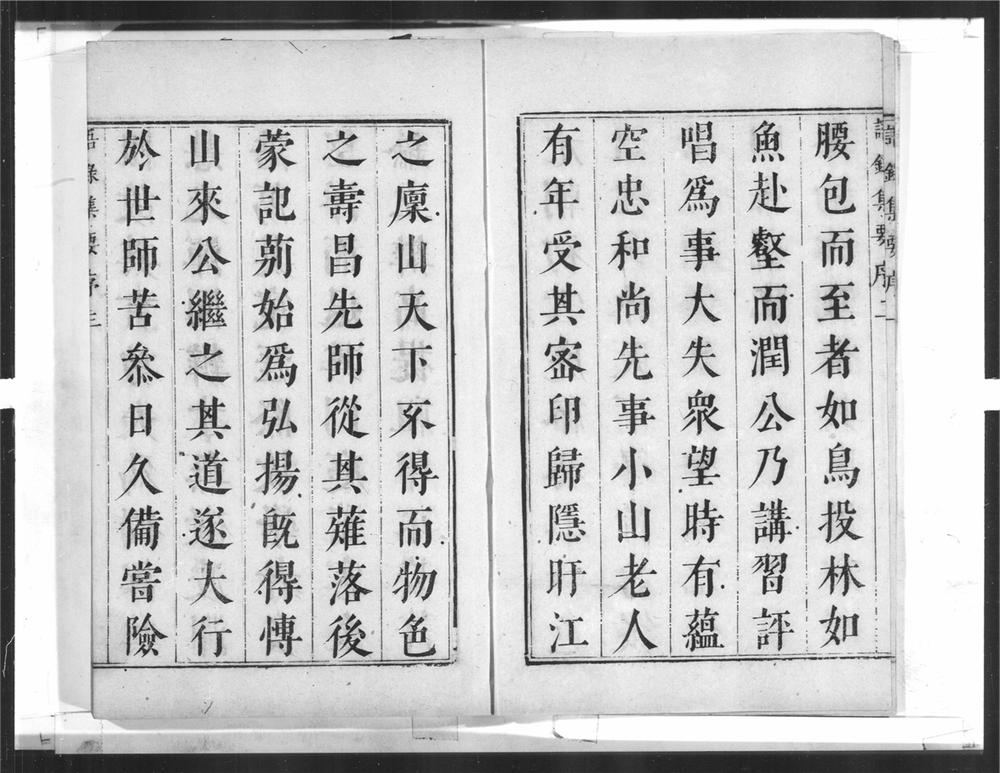 語錄集要序二
腰包而至者如鳥投林如
魚赴壑而潤公乃講習評
唱爲事大失衆望時有蘊
空忠和尚先事小山老人
有年受其宻印歸隱盱江
之廩山天下不得而物色
之壽昌先師從其薙落後
蒙記莂始爲弘揚旣得慱
山來公繼之其道遂大行
於世師苦叅日久備嘗險
語錄集要序三